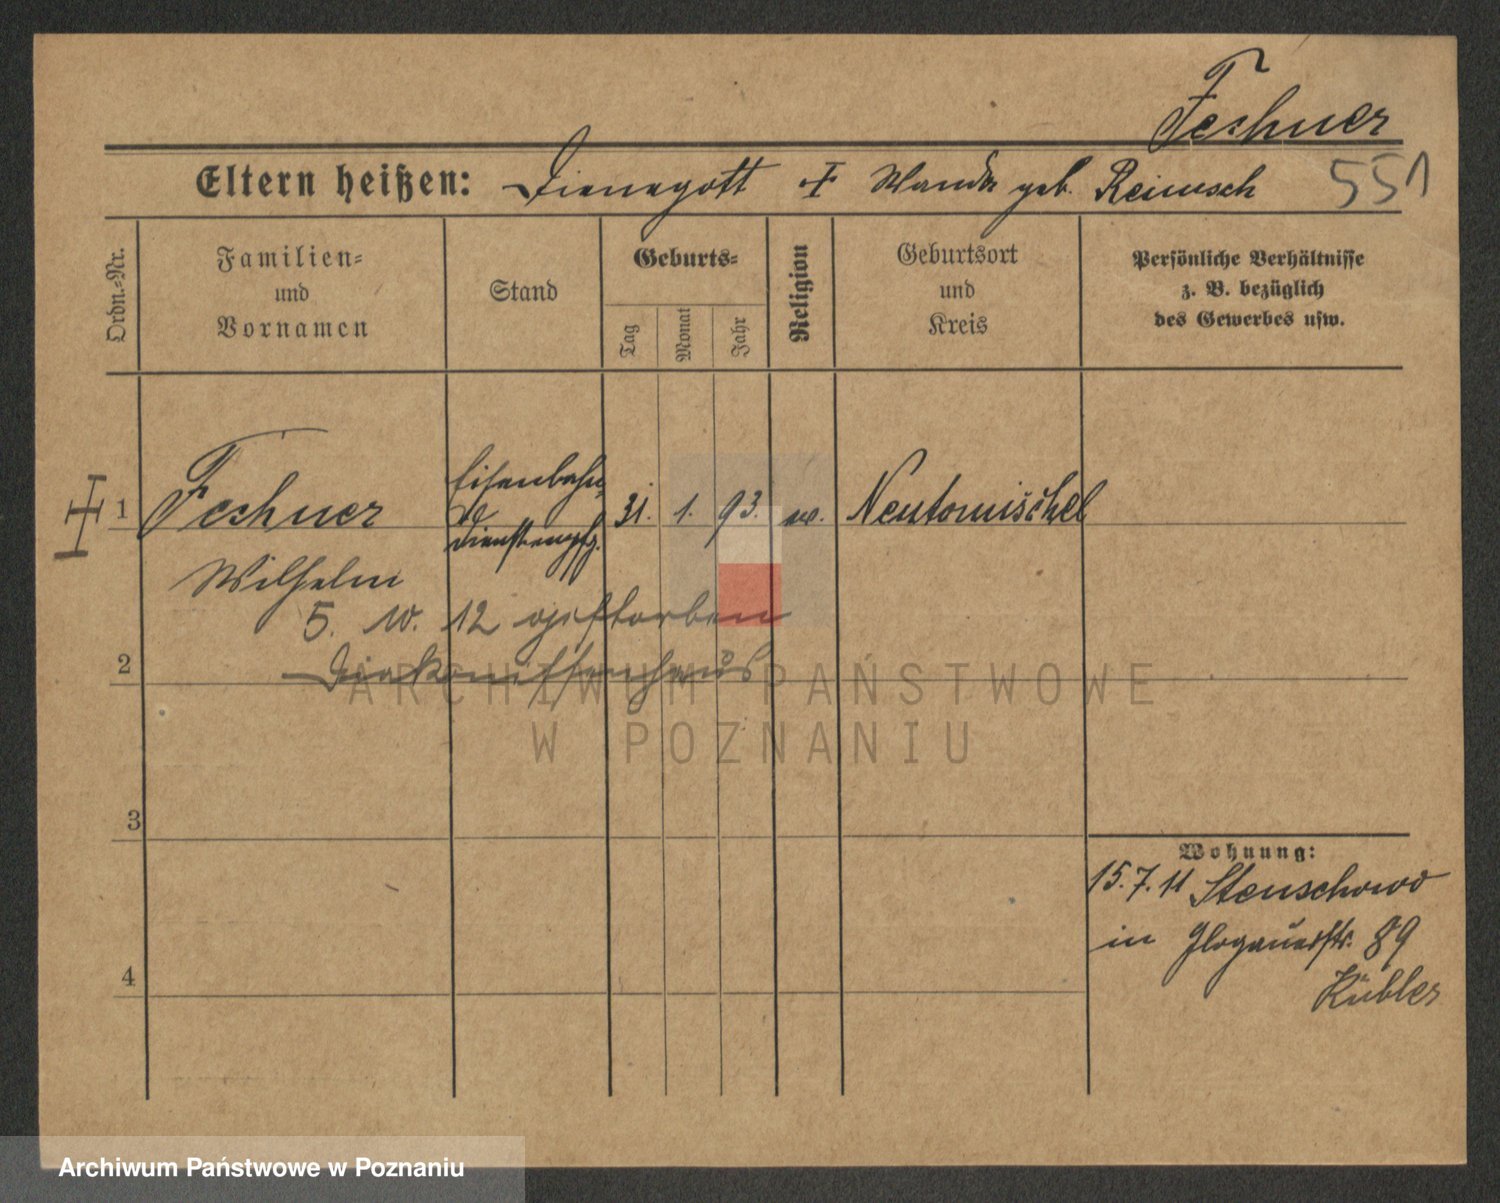 Fechner
Eltern heißen: Dienegott + Wanda geb. Reinsch 551
Ordn.-Nr.
Familien- und Vornamen
Stand
Geburts-
Tag
Monat
Jahr
Religion
Geburtsort und Kreis
Persönliche Verhältnisse
z. B. bezüglich
des Gewerbes usw.
1 Fechner Eisenbahn 31. 1. 93. ev. Neutomischel
dienstempfg.
Wilhelm
5. 10. 12 gestorben
2 Diakonissenhaus
3
4
Wohnung:
15.7.11 Stenschewo
in Glogauerstr. 89
Kübler
ARCHIWUM PAŃSTWOWE
W POZNANIU
Archiwum Państwowe w Poznaniu